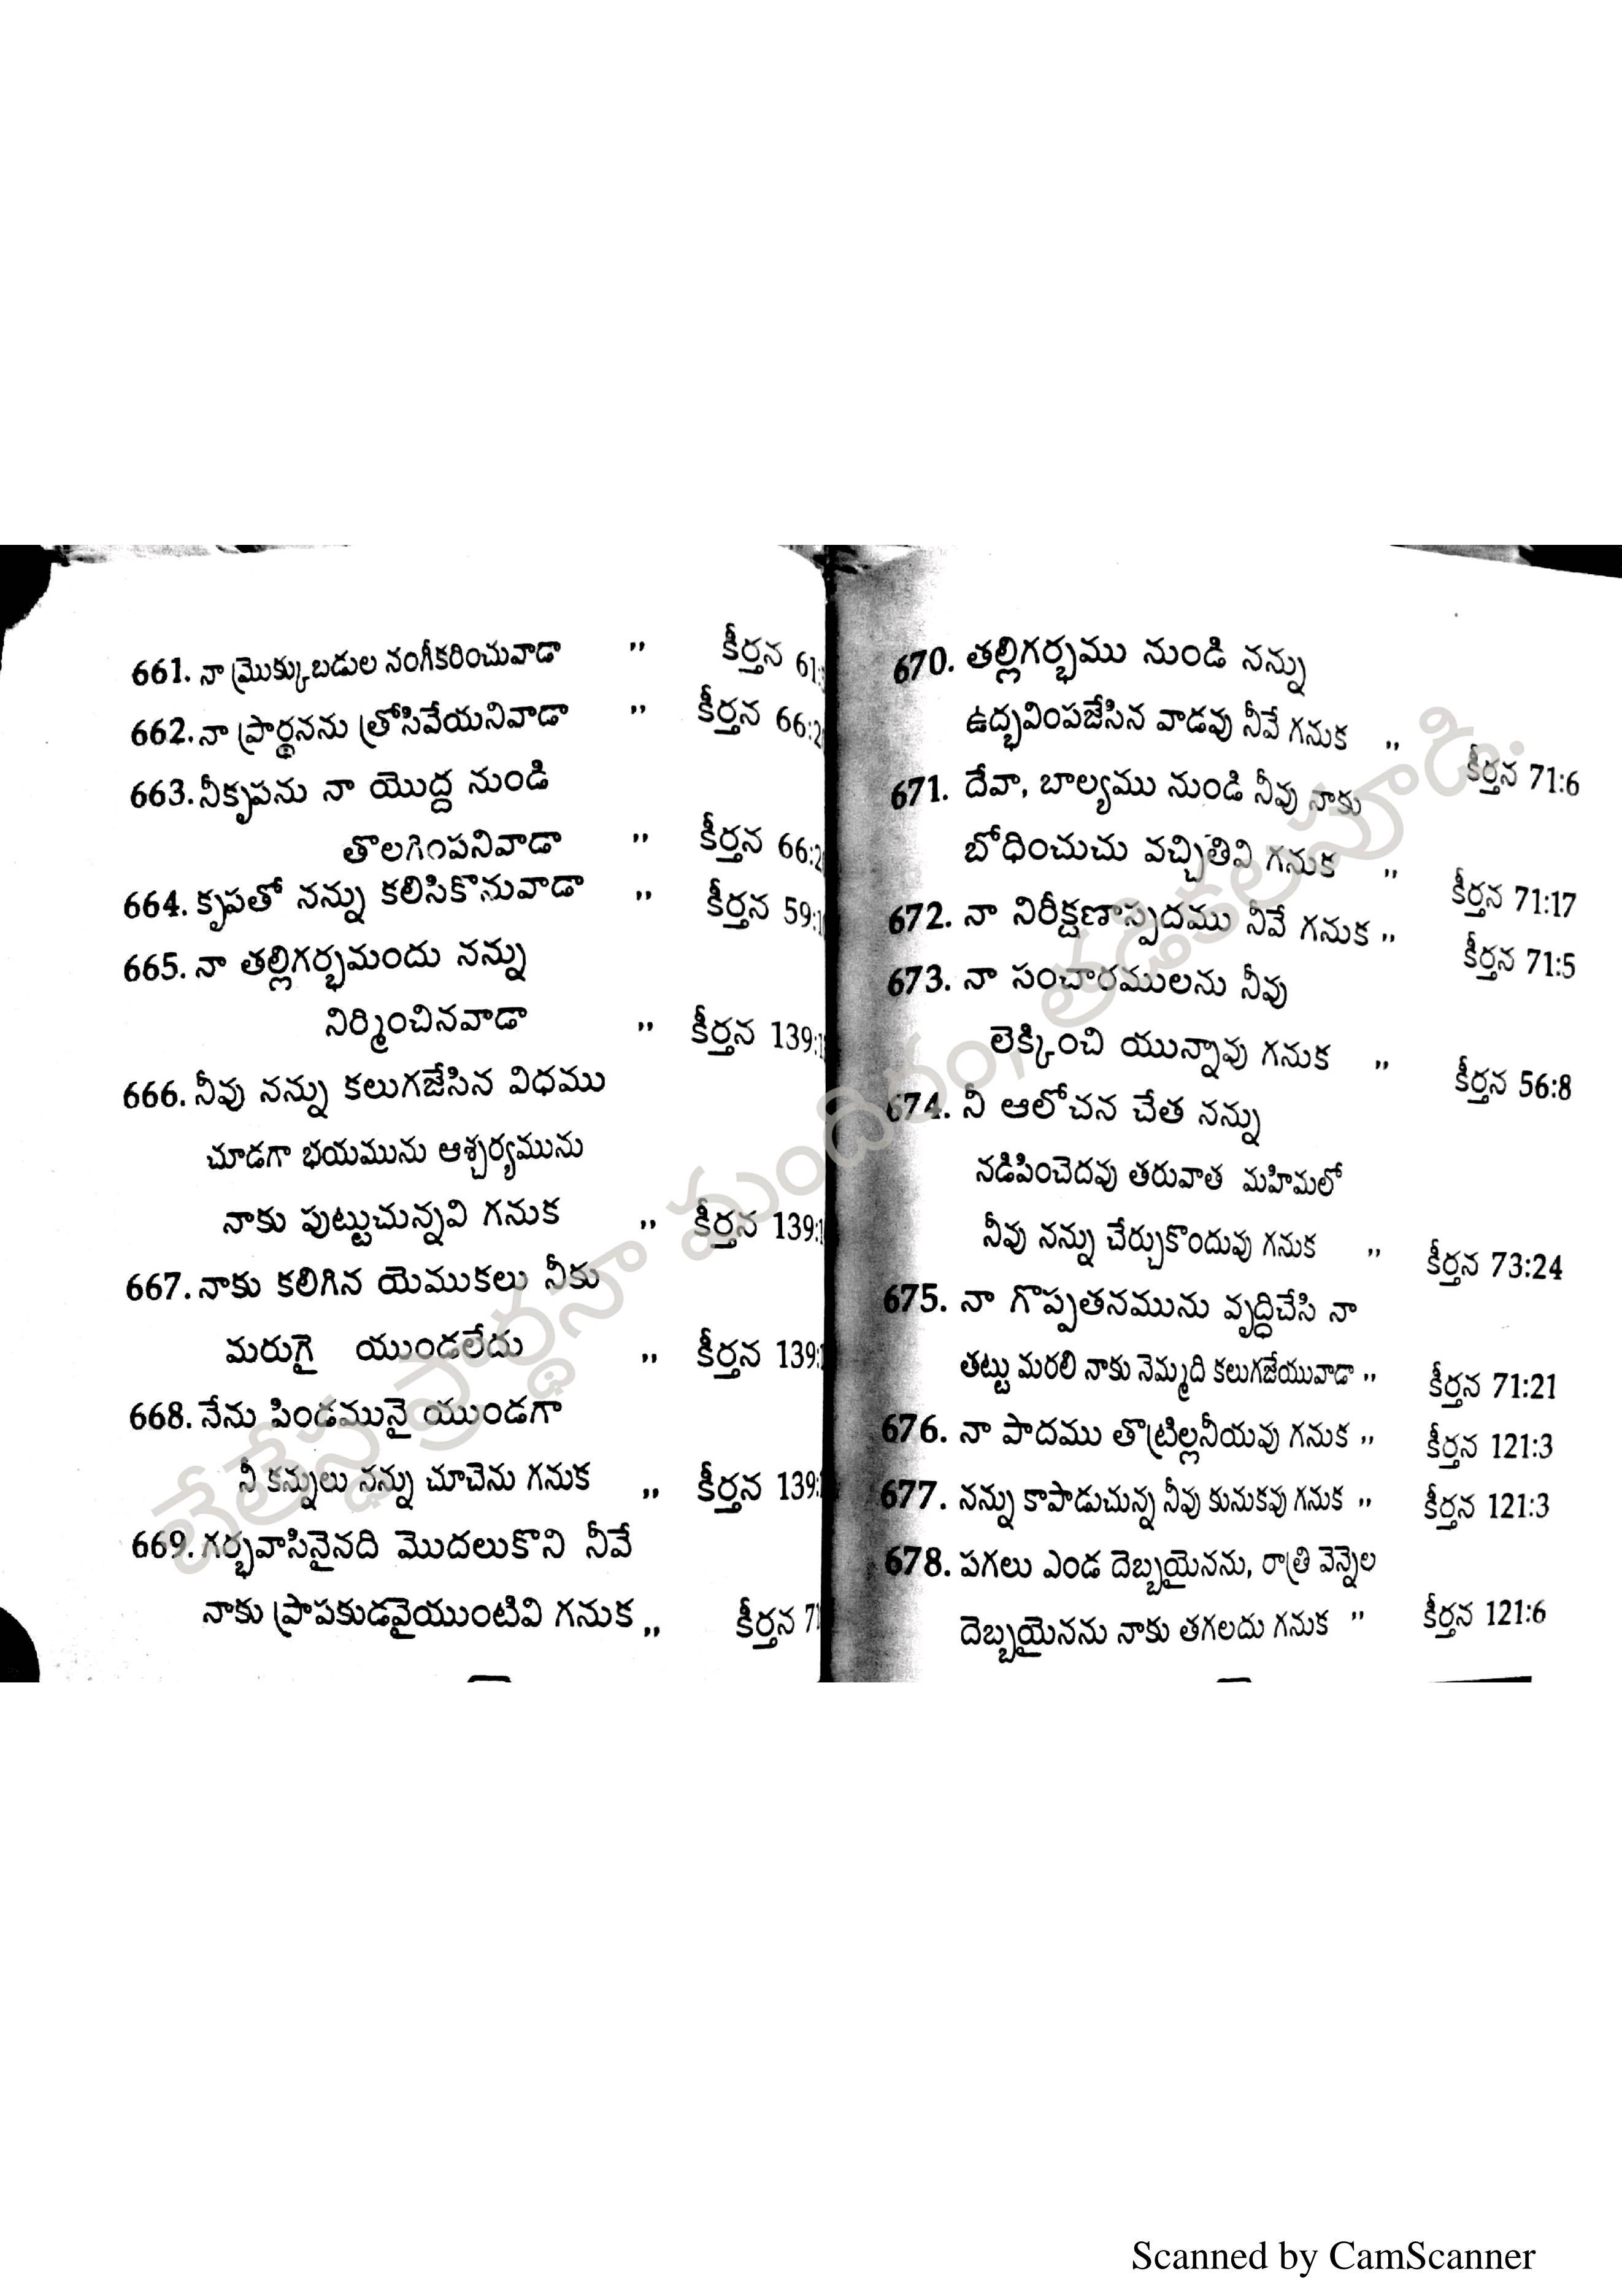 661. నా మ్రొక్కుబడుల నంగీకరించువాడా ,, కీర్తన 61:
662. నా ప్రార్థనను త్రోసివేయనివాడా ,, కీర్తన 66:2
663. నీకృపను నా యొద్ద నుండి
తొలగింపనివాడా ,, కీర్తన 66:2
664. కృపతో నన్ను కలిసికొనువాడా ,, కీర్తన 59:1
665. నా తల్లిగర్భమందు నన్ను
నిర్మించినవాడా ,, కీర్తన 139:1
666. నీవు నన్ను కలుగజేసిన విధము
చూడగా భయమును ఆశ్చర్యమును
నాకు పుట్టుచున్నవి గనుక ,, కీర్తన 139:1
667. నాకు కలిగిన యెముకలు నీకు
మరుగై యుండలేదు ,, కీర్తన 139:
668. నేను పిండమునై యుండగా
నీ కన్నులు నన్ను చూచెను గనుక ,, కీర్తన 139:
669. గర్భవాసినైనది మొదలుకొని నీవే
నాకు ప్రాపకుడవైయుంటివి గనుక ,, కీర్తన 71
670. తల్లిగర్భము నుండి నన్ను
ఉద్భవింపజేసిన వాడవు నీవే గనుక ,, కీర్తన 71:6
671. దేవా, బాల్యము నుండి నీవు నాకు
బోధించుచు వచ్చితివి గనుక ,, కీర్తన 71:17
672. నా నిరీక్షణాస్పదము నీవే గనుక ,, కీర్తన 71:5
673. నా సంచారములను నీవు
లెక్కించి యున్నావు గనుక ,, కీర్తన 56:8
674. నీ ఆలోచన చేత నన్ను
నడిపించెదవు తరువాత మహిమలో
నీవు నన్ను చేర్చుకొందువు గనుక ,, కీర్తన 73:24
675. నా గొప్పతనమును వృద్ధిచేసి నా
తట్టు మరలి నాకు నెమ్మది కలుగజేయువాడా ,, కీర్తన 71:21
676. నా పాదము తొట్రిల్లనీయవు గనుక ,, కీర్తన 121:3
677. నన్ను కాపాడుచున్న నీవు కునుకవు గనుక ,, కీర్తన 121:3
678. పగలు ఎండ దెబ్బయైనను, రాత్రి వెన్నెల
దెబ్బయైనను నాకు తగలదు గనుక ,, కీర్తన 121:6
బేతేస్థ ప్రార్థనా మందిరం, తడికలపూడి.
Scanned by CamScanner